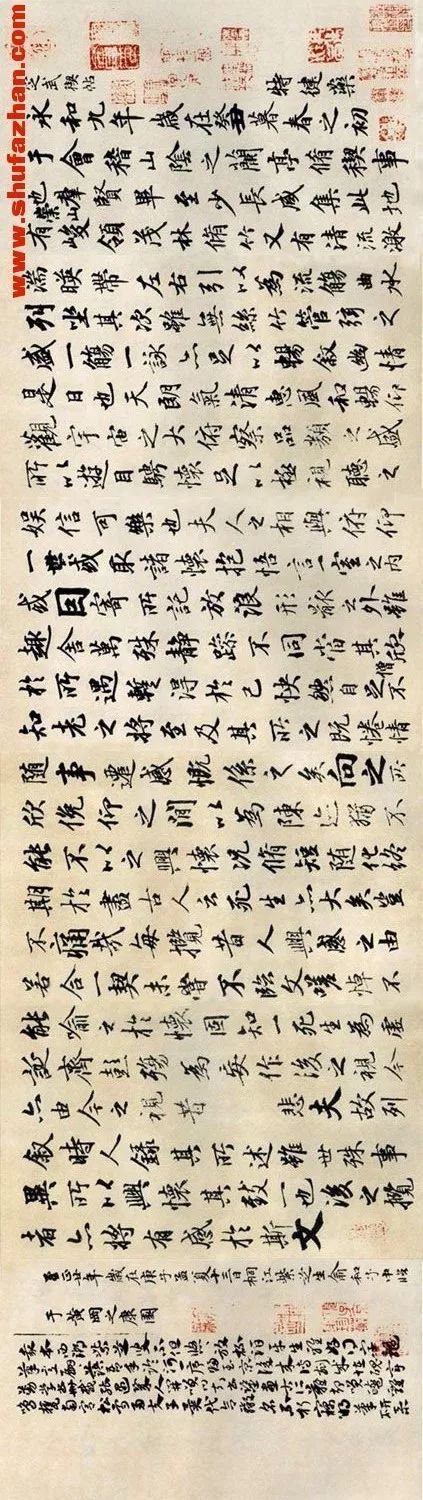 www.shufazhan.com
之武禊帖
特健藥
永和九年歲在癸丑暮春之初
于會稽山陰之蘭亭脩稧事
也羣賢畢至少長咸集此地
有崇山峻領茂林脩竹又有清流激
湍暎帶左右引以為流觴曲水
列坐其次雖無絲竹管弦之
盛一觴一詠亦足以暢敘幽情
是日也天朗氣清惠風和暢仰
觀宇宙之大俯察品類之盛
所以遊目騁懷足以極視聽之
娛信可樂也夫人之相與俯仰
一世或取諸懷抱悟言一室之內
或因寄所託放浪形骸之外雖
趣舍萬殊靜躁不同當其欣
於所遇蹔得於己快然自足不
僧
知老之將至及其所之既惓情
隨事遷感慨係之矣向之所
欣俛仰之間以為陳迹猶不
能不以之興懷況脩短隨化終
期於盡古人云死生亦大矣豈
不痛哉每攬昔人興感之由
若合一契未嘗不臨文嗟悼不
能喻之於懷固知一死生為虛
誕齊彭殤為妄作後之視今
亦由今之視昔悲夫故列
敘時人錄其所述雖世殊事
異所以興懷其致一也後之攬
者亦將有感於斯文
至正廿年歲在庚子孟夏十三日桐江紫芝生俞和子中臨
于黃岡之康園